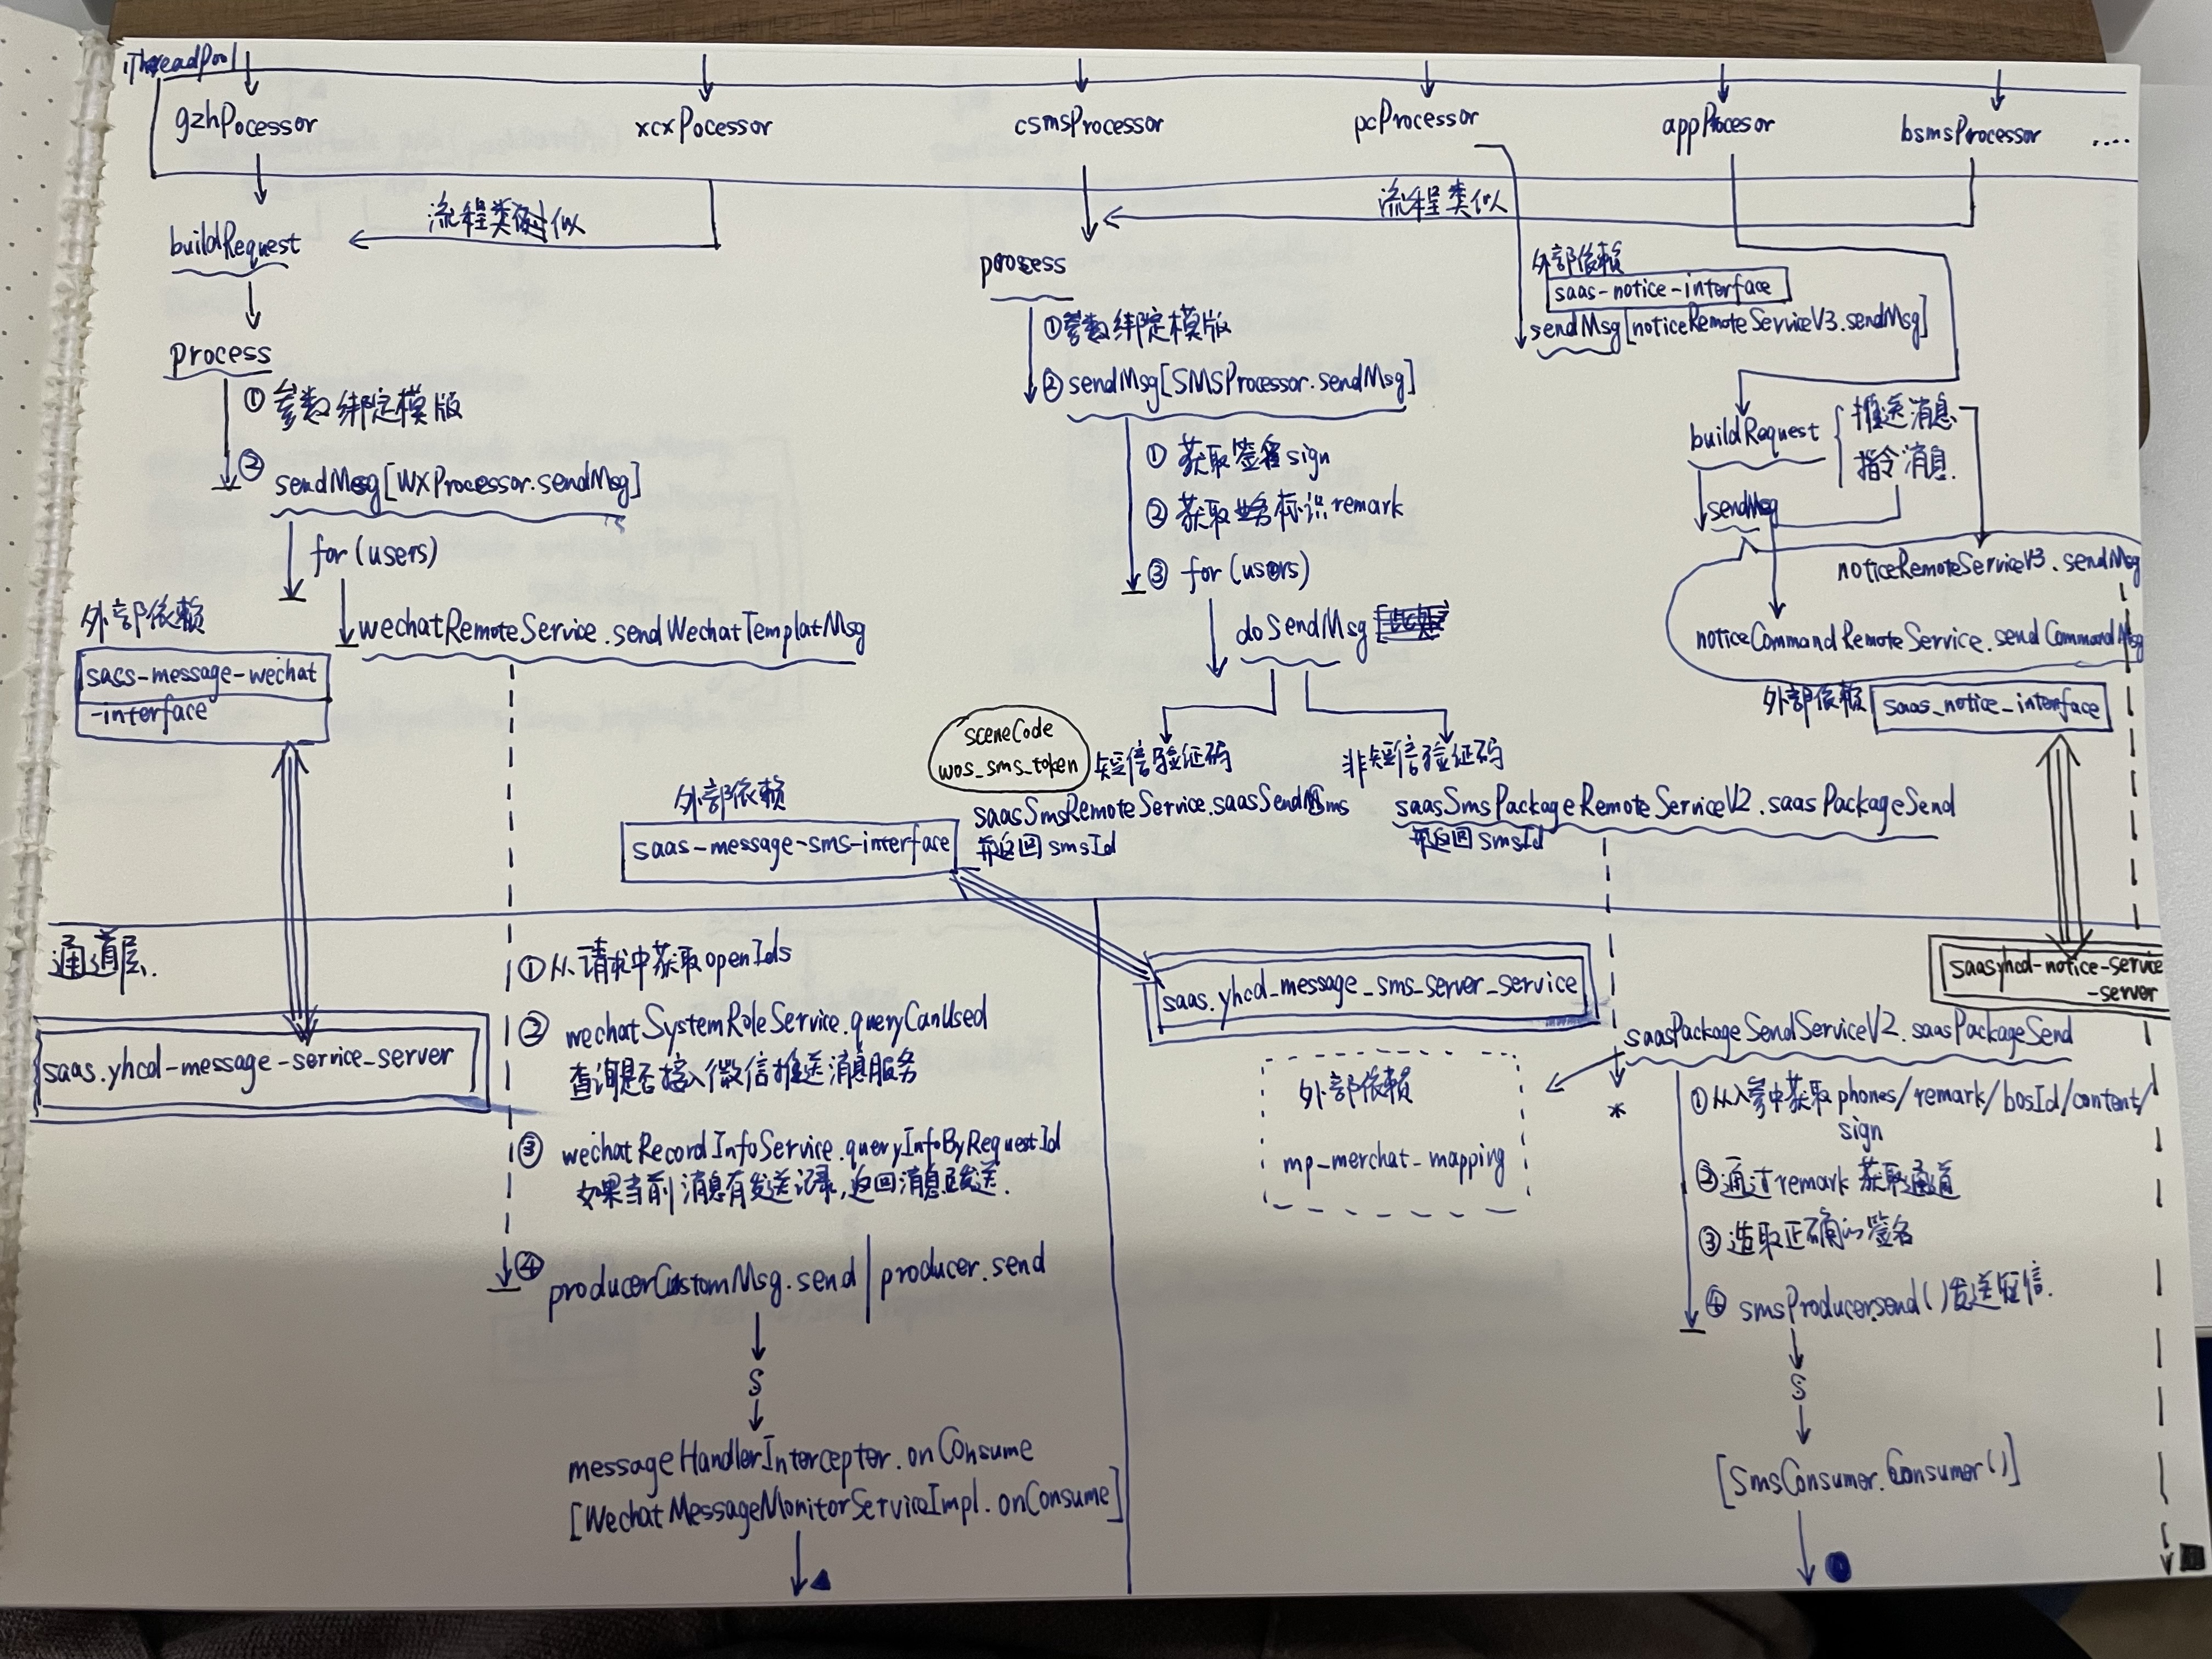 iThreadPool
gzhPocessor
xcxPocessor
csmsProcessor
pcProcessor
appProcesor
bsmsProcessor
....
流程类似
流程类似
buildRequest
process
① 参数绑定模版
② sendMsg[WXProcessor.sendMsg]
for (users)
wechatRemoteService.sendWechatTemplatMsg
外部依赖
sacs-message-wechat
-interface
process
①参数绑定模版
② sendMsg[SMSProcessor.sendMsg]
① 获取签名sign
② 获取业务标识remark
③ for (users)
doSendMsg
sceneCode
wos_sms_token
短信验证码
saasSmsRemoteService.saasSendSms
并返回 smsId
非短信验证码
saasSmsPackageRemoteServiceV2.saasPackageSend
并返回 smsId
外部依赖
saas-message-sms-interface
外部依赖
saas-notice-interface
sendMsg[noticeRemoteServiceV3.sendMsg]
buildRequest
推送消息
指令消息.
sendMsg
noticeRemoteServiceV3.sendMsg
noticeCommandRemoteService.sendCommandMsg
外部依赖
saas_notice_interface
通道层.
saas.yhcd-message-service_server
①从请求中获取openIds
② wechatSystemRoleService.queryCanUsed
查询是否接入微信推送消息服务
③ wechatRecordInfoService.queryInfoByRequestId
如果当前消息有发送记录,返回消息已发送.
④ producerCustomMsg.send | producer.send
S
messageHandlerInterceptor.onConsume
[WechatMessageMonitorServiceImpl.onConsume]
saas.yhcd_message_sms_server_service
外部依赖
mp_merchat_mapping
saasyhcd-notice-service
-server
saasPackageSendServiceV2.saasPackageSend
*
①从入参中获取phones/remark/bosId/content/
sign
②通过remark获取通道
③ 选取正确的签名
④ smsProducer.send()发送短信.
S
[SmsConsumer.Consumer()]